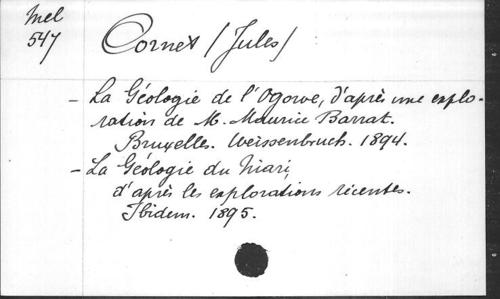 Mel
547
Cornet (Jules)
- La Géologie de l'Ogowe, d'après une explo-
ration de M. Maurice Barrat.
Bruxelles. Weissenbruch. 1894.
- La Géologie du Niari,
d'après les explorations récentes.
Ibidem. 1895.